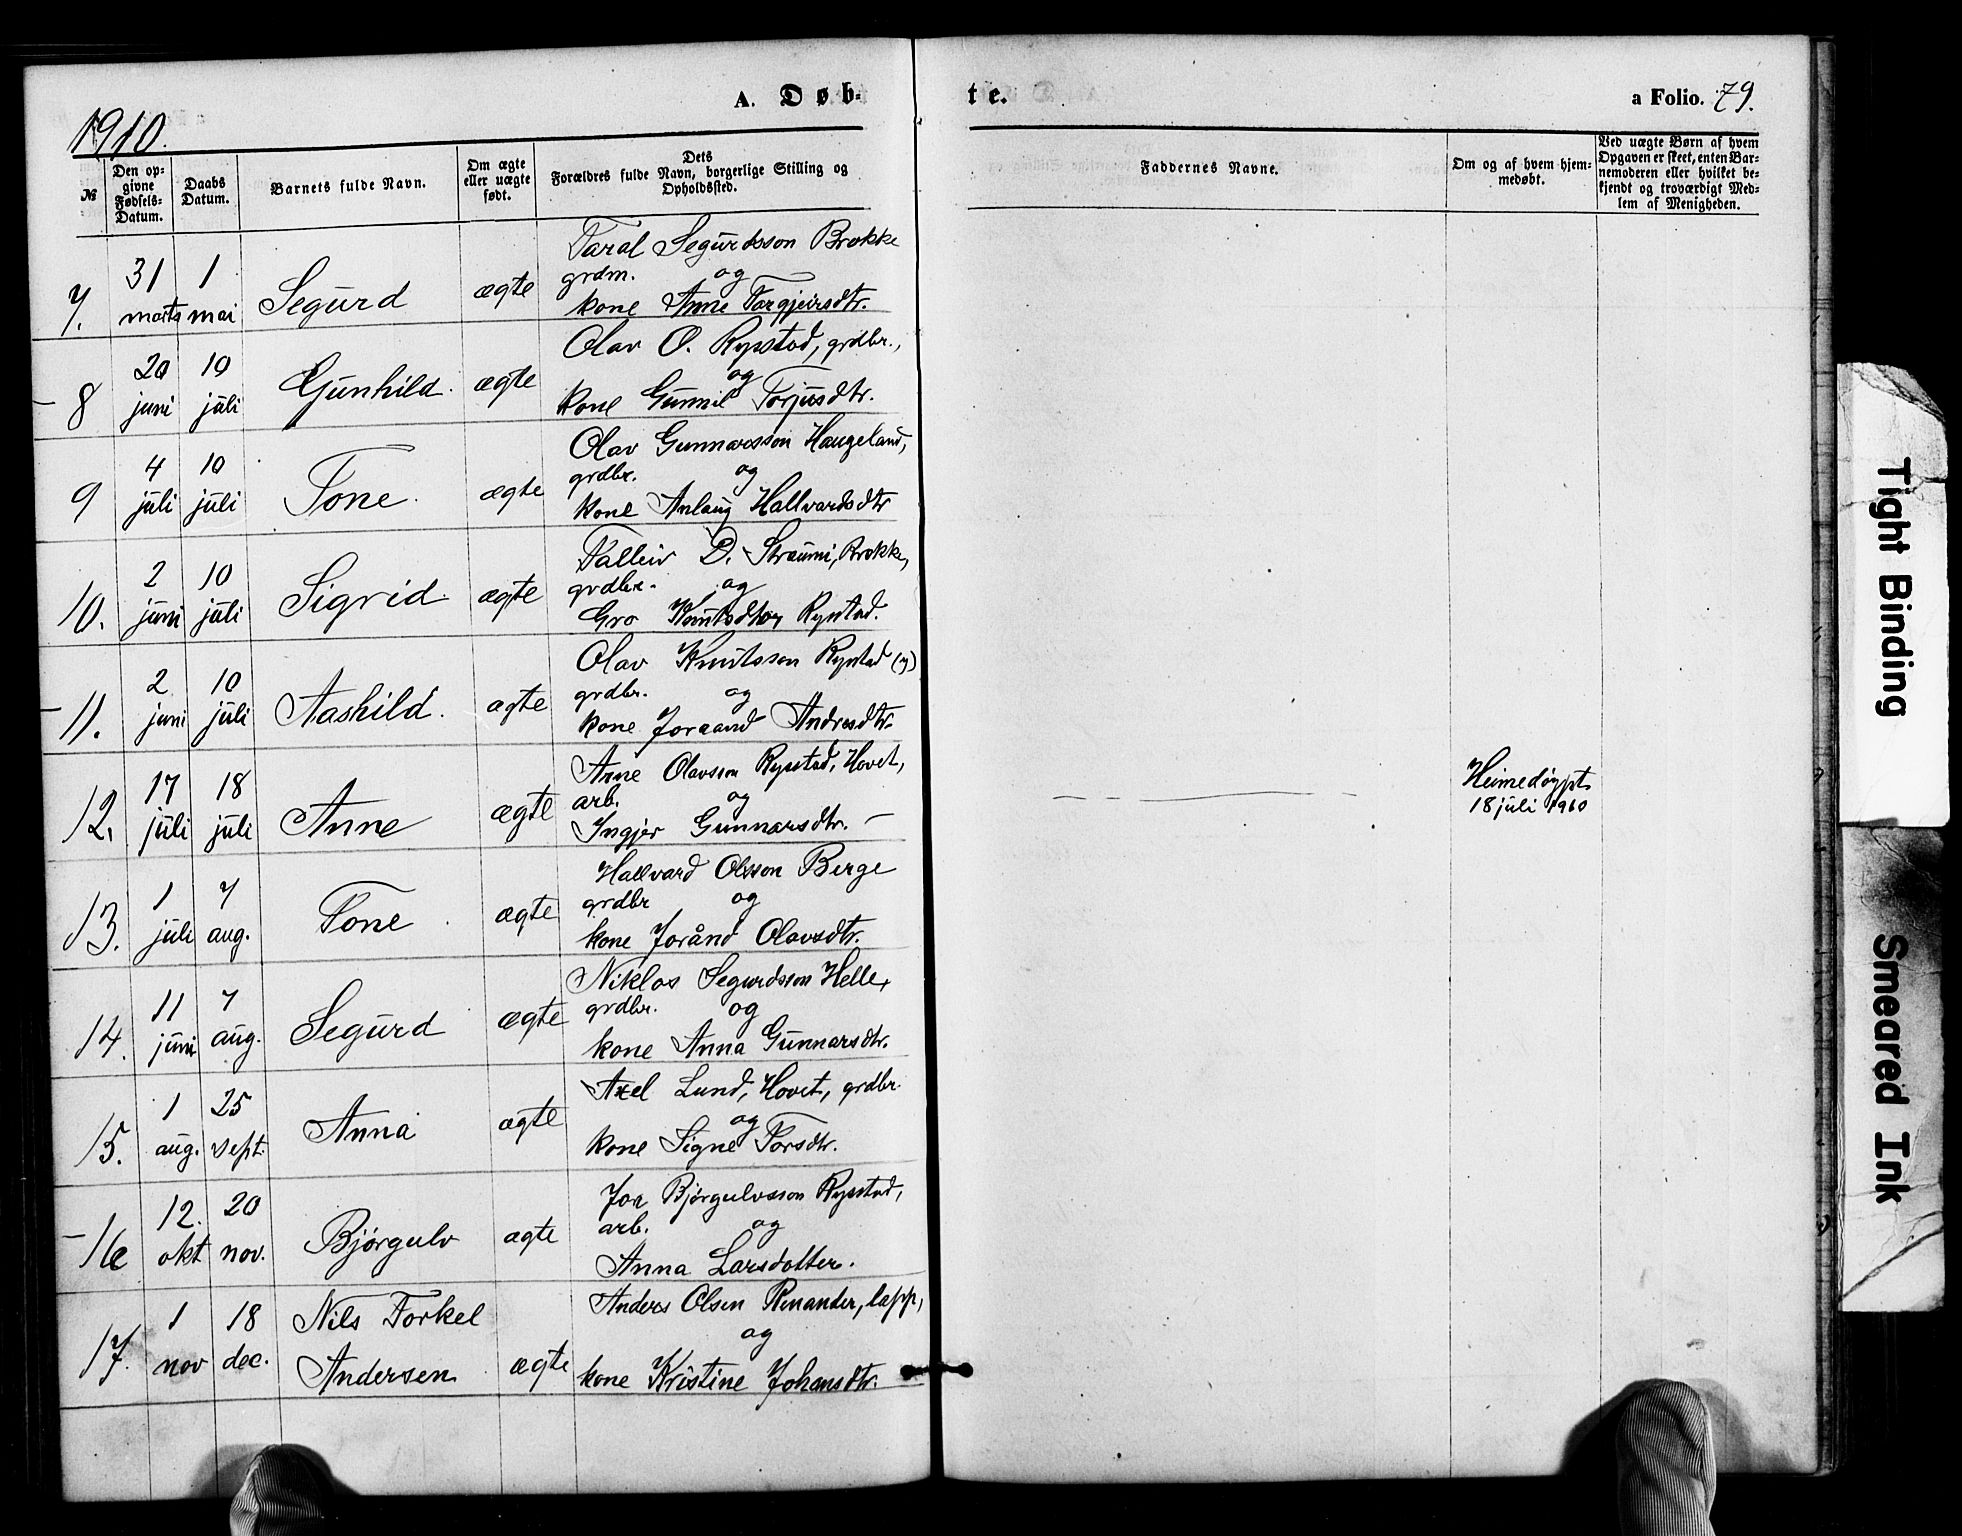 1910.
A. Døb-
te.
a Folio. 79.
№
Den op-
givne
Fødsels-
Datum.
Daabs
Datum.
Barnets fulde Navn.
Om ægte
eller uægte
født.
Dets
Forældres fulde Navn, borgerlige Stilling og
Opholdssted.
Faddernes Navne.
Om og af hvem hjem-
medøbt.
Ved uægte Børn af hvem
Opgaven er skeet, enten Bar-
nemoderen eller hvilket be-
kjendt og troværdigt Med-
lem af Menigheden.
7. 31 marts 1 mai Segurd ægte
Taral Segurdsson Brokke
grdm. og
kone Anne Torgjeirsdtr.
8 20 juni 10 juli Gunhild. ægte
Olav O. Rysstad, grdbr.,
og
kone Gunnil Torjusdtr.
9 4 juli 10 juli Tone. ægte
Olav Gunnarsson Haugeland,
grdbr. og
kone Anlaug Hallvardsdtr
10. 2 juni 10 juli Sigrid. ægte
Talleiv D. Straumi, Brokke,
grdbr. og
Gro Knutsdtr, Rysstad.
11. 2 juni 10 juli Aashild. ægte
Olav Knutsson Rysstad (y)
grdbr. og
kone Joraand Andresdtr.
12. 17 juli 18 juli Anne ægte
Arne Olavsson Rysstad, Hovet,
arb. og
Ingjer Gunnarsdtr. –
Heimedøypt
18 juli 1910
13. 1 juli 7 aug. Tone ægte
Hallvard Olsson Berge
grdbr og
kone Jorånd Olavsdtr.
14. 11 juni 7 aug. Segurd ægte
Niklos Segurdsson Helle,
grdbr. og
kone Anna Gunnarsdtr.
15. 1 aug. 25 sept. Anna ægte
Axel Lund, Hovet, grdbr.
og
kone Signe Torsdtr.
16 12. okt 20 nov. Bjørgulv ægte
Jon Bjørgulvsson Rysstad,
arb. og
Anna Larsdotter.
17. 1 nov 18 dec. Nils Torkel
Andersen ægte
Anders Olsen Renander, lapp,
og
kone Kristine Johansdtr.
Tight Binding
Smeared Ink